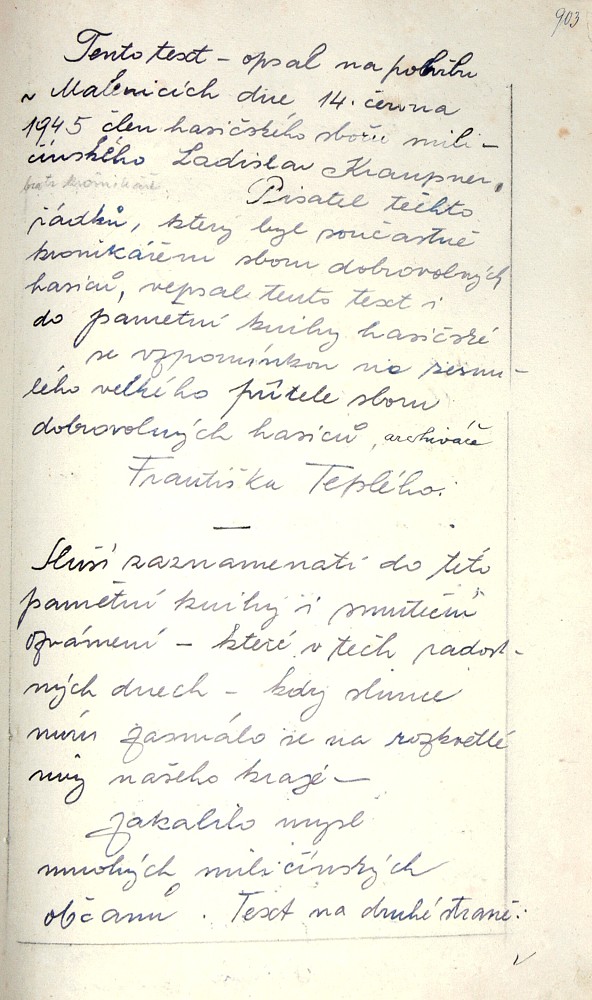 903
Tento text – opsal na pohřbu
v Malenicích dne 14. června
1945 člen hasičského sboru mili-
čínského Ladislav Kraupner,
bratr kronikáře. Pisatel těchto
řádků, který byl součastně
kronikářem sboru dobrovolných
hasičů, vepsal tento text i
do pamětní knihy hasičské
se vzpomínkou na zesnu-
lého velkého přítele sboru
dobrovolných hasičů, archiváře
Františka Teplého.
—
Sluší zaznamenati do této
pamětní knihy i smuteční
oznámení – které v těch radost-
ných dnech – kdy slunce
míru zasmálo se na rozkvetlé
nivy našeho kraje –
zakalilo mysl
mnohých miličínských
občanů. Text na druhé straně: